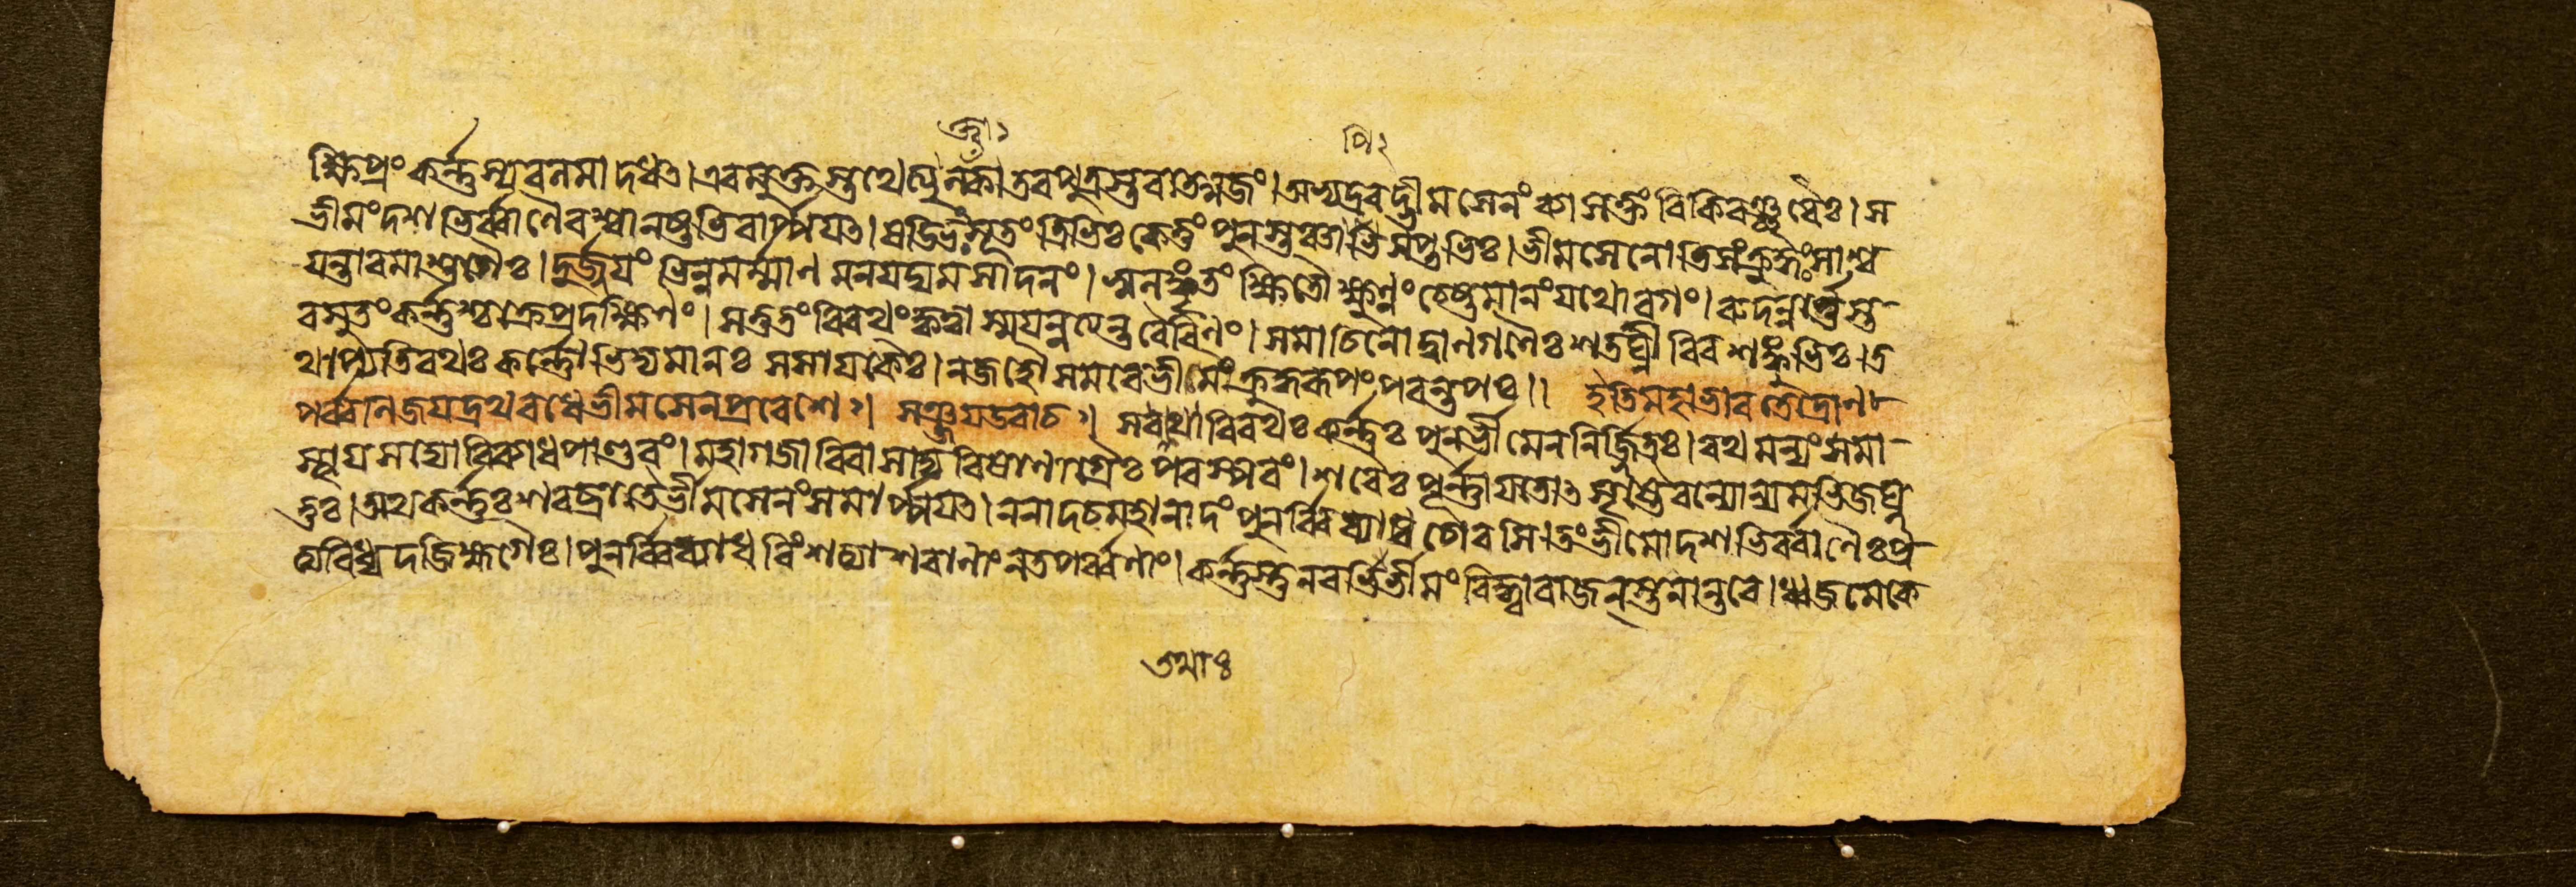 ক্ষিপ্রং কর্ন্নস্যৰনমাদধৎ।এবমুক্তস্তথেত্যুনক্কাতবপুত্রস্তবাত্মজং।অভ্যদ্রবদ্ভীমসেনং ব্যাসক্তং বিকিৰঞ্ছৰৈঃ।স
ভীমংদশভির্ব্বাণৈৰশ্বানষ্টভিৰার্প্পযৎ।ষড্ভিঃসূতংত্রিভিঃকেতুং পুনস্তঞ্চাভিসপ্তভিঃ।ভীমসেনোতিসংক্রুদ্ধঃসাশ্ব
যন্তাৰমাশুগৈঃ।দুর্জ্জযং ভিন্নমর্ম্মাণ মনযদ্যমসাদনং।স্বলঙ্কৃতং ক্ষিতৌক্ষুণ্ণং চেষ্টমানংযথোৰগং।ৰুদন্নার্ত্তস্ত
বসুতংকর্ন্নশ্চক্রেপ্রদক্ষিণং।সতুতংবিৰথংকৃত্বা স্মযন্নত্যন্তবৈৰিণং।সমাচিনোদ্বাণগণৈঃ শতঘ্নীৰিবশঙ্কুভিঃ।ত
থাপ্যতিৰথঃ কর্ন্নোভিদ্যমানঃ সসাযকৈঃ।নজহৌ সমৰেভীমংক্রুদ্ধৰূপংপৰন্তপঃ॥ ইতিমহাভাৰতেদ্রোণ
পর্ব্বানজযদ্রথবধেভীমসেনপ্রবেশে ঃ। সঞ্জযউবাচ ঃ। সর্ব্বথাবিৰথঃকর্ন্নঃ পুনর্ভীমেননির্জ্জিতঃ।ৰথমন্যংসমা
স্থাযসদ্যোবিব্যাধপাণ্ডবং।মহাগজাবিবাসাদ্য বিষাণাগ্রৈঃপৰস্পৰং।শৰৈঃ পূর্ন্নাযতোৎসৃষ্টৈৰন্যোন্যমভিজঘ্ন
তুঃ।অথকর্ন্নঃশৰব্রাতৈর্ভীমসেনংসমার্প্পযৎ।ননাদচমহানাদং পুনর্ব্বিব্যাধচোৰসি।তংভীমোদশভির্ব্বাণৈঃপ্র
ত্যবিধ্যদজিহ্মগৈঃ।পুনর্ব্বিব্যাধ বিংশত্যাশৰাণাংনতপর্ব্বণাং।কর্ন্নস্তুনবভির্ভীমং বিদ্ধ্বাৰাজন্স্তনান্তৰে।ধ্বজমেকে